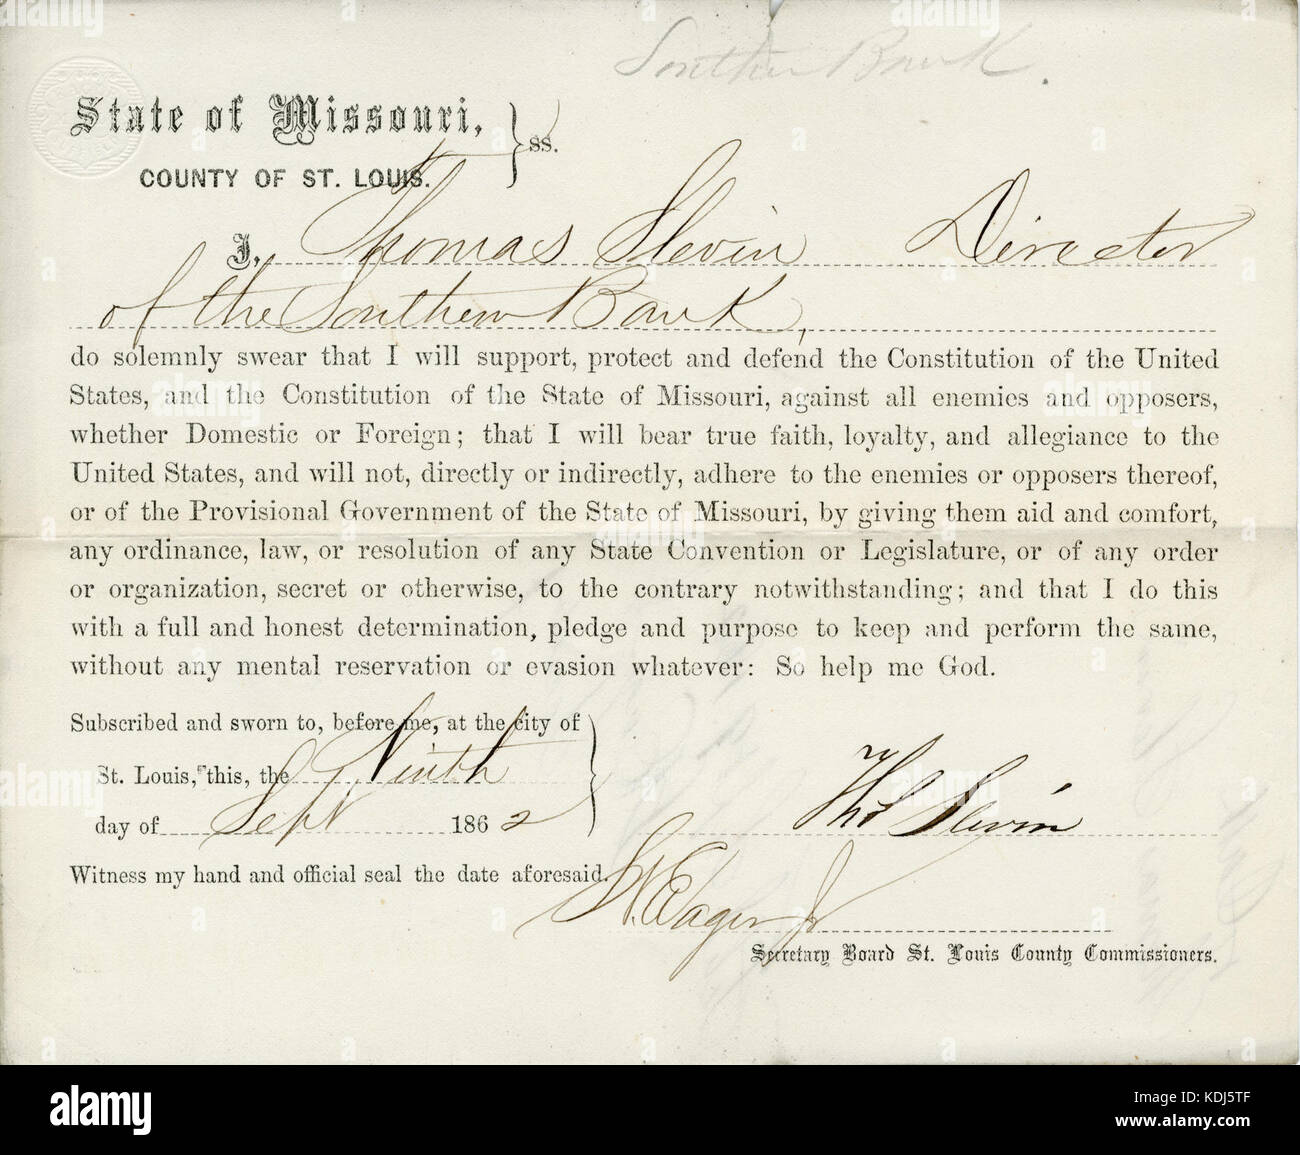 Southern Bank.
State of Missouri,
COUNTY OF ST. LOUIS. } ss.
I, Thomas Slevin Director
of the Southern Bank,
do solemnly swear that I will support, protect and defend the Constitution of the United
States, and the Constitution of the State of Missouri, against all enemies and opposers,
whether Domestic or Foreign; that I will bear true faith, loyalty, and allegiance to the
United States, and will not, directly or indirectly, adhere to the enemies or opposers thereof,
or of the Provisional Government of the State of Missouri, by giving them aid and comfort,
any ordinance, law, or resolution of any State Convention or Legislature, or of any order
or organization, secret or otherwise, to the contrary notwithstanding; and that I do this
with a full and honest determination, pledge and purpose to keep and perform the same,
without any mental reservation or evasion whatever: So help me God.
Subscribed and sworn to, before me, at the city of
St. Louis, this, the Ninth
day of Sept 1862
Thos Slevin
Witness my hand and official seal the date aforesaid.
Wager Jr
Secretary Board St. Louis County Commissioners.
alamy
Image ID: KDJ5TF
www.alamy.com